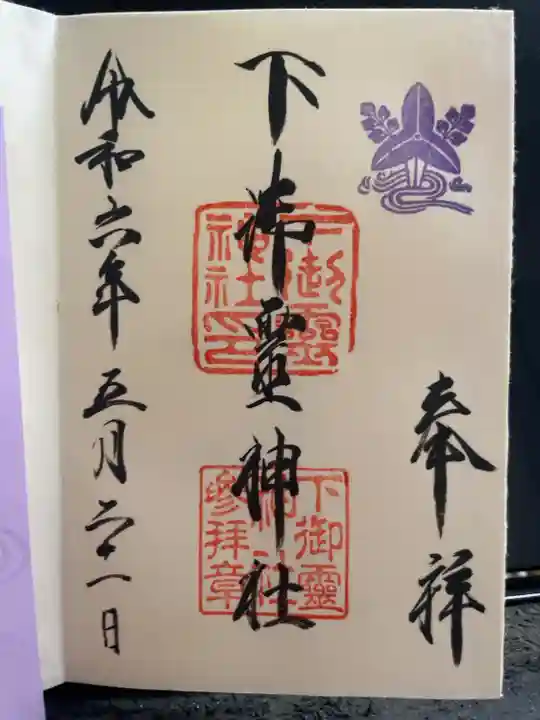 奉祥
下御靈神社
下御靈神社印
下御靈神社参拝章
令和六年五月二十一日